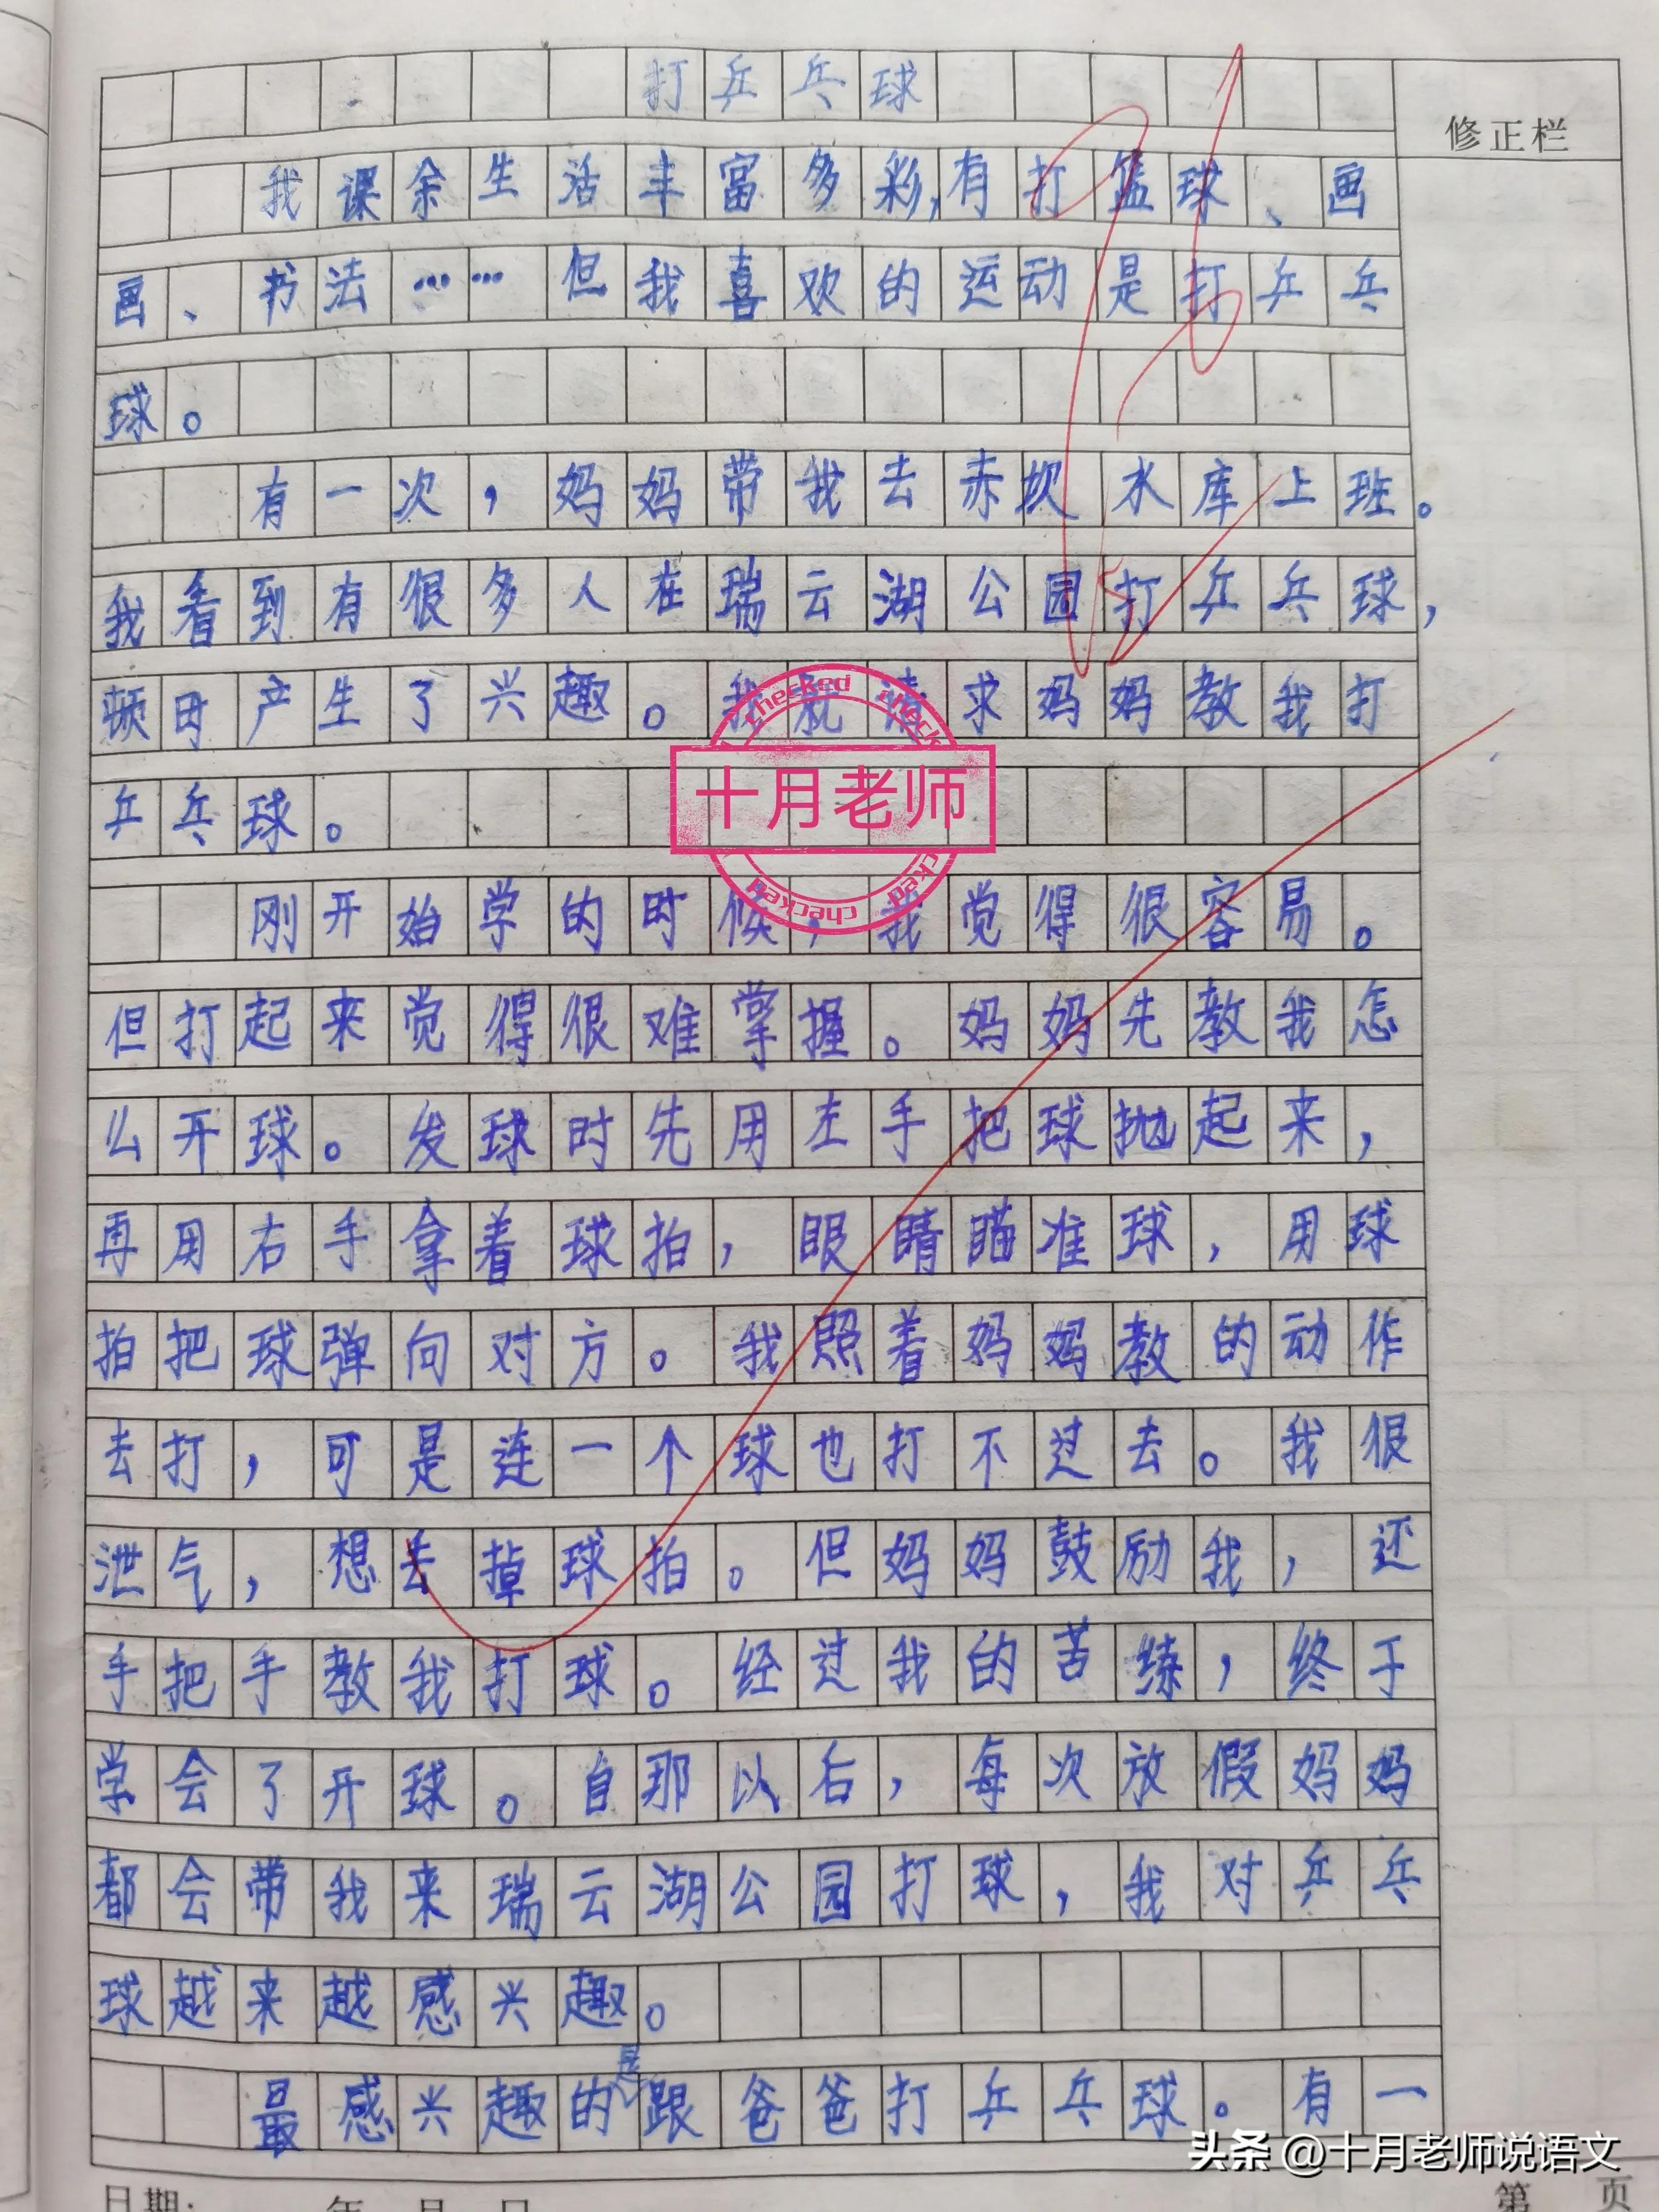 打乒乓球
修正栏
我课余生活丰富多彩,有打篮球、画
画、书法……但我喜欢的运动是打乒乓
球。
有一次，妈妈带我去赤坎水库上班。
我看到有很多人在瑞云湖公园打乒乓球，
顿时产生了兴趣。我就请求妈妈教我打
乒乓球。
checked checked
十月老师
checked checked
刚开始学的时候，我觉得很容易。
但打起来觉得很难掌握。妈妈先教我怎
么开球。发球时先用左手把球抛起来，
再用右手拿着球拍，眼睛瞄准球，用球
拍把球弹向对方。我照着妈妈教的动作
去打，可是连一个球也打不过去。我很
泄气，想丢掉球拍。但妈妈鼓励我，还
手把手教我打球。经过我的苦练，终于
学会了开球。自那以后，每次放假妈妈
都会带我来瑞云湖公园打球，我对乒乓
球越来越感兴趣。
最感兴趣的是跟爸爸打乒乓球。有一
头条 @十月老师说语文
日期: 年 月 日
第 页